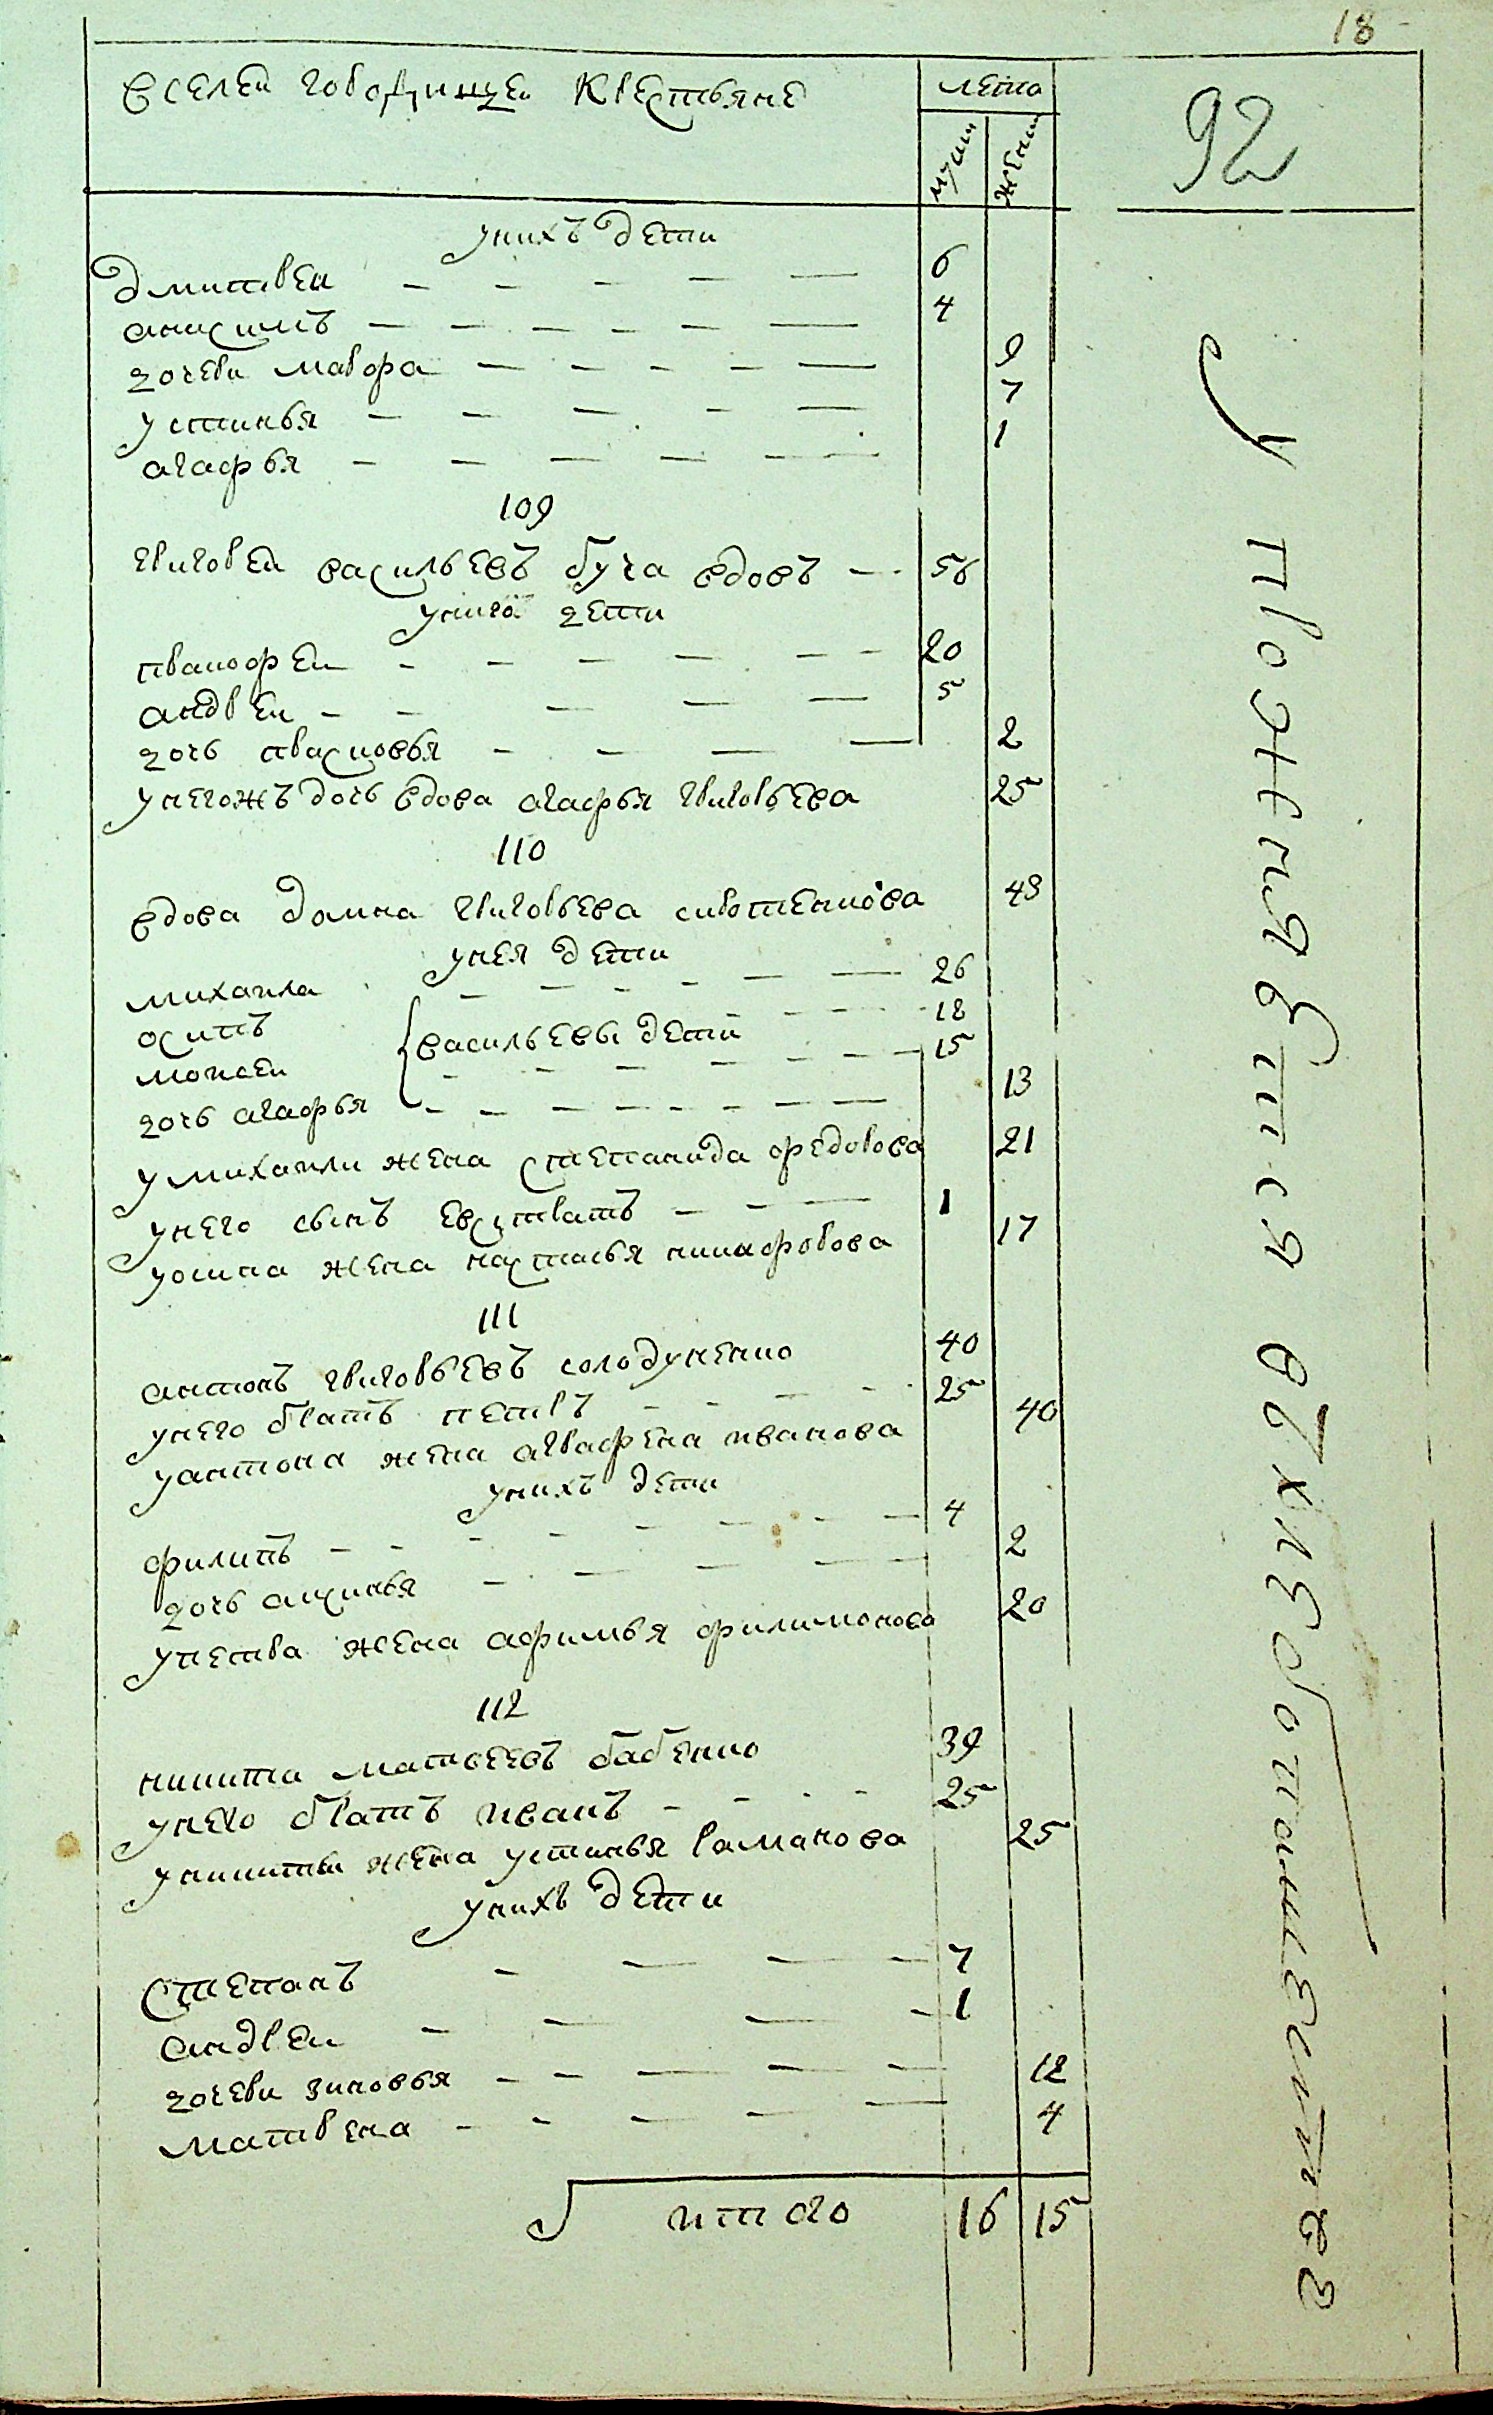 18
вселеи городищеи крестьяне
лета
муш
женш
92
унихъ дети
дмитреи 6
анисимъ 4
дочери мавра 9
устинья 7
агафья 1
109
григореи васильевъ буча вдовъ 56
унего дети
пранофеи 20
андреи 5
дочь прасковья 2
унегожъ дочь вдова агафья григорьева 25
110
вдова домна григорьева сиротенкова 48
унея дети
михаила 26
осипъ 18
васильевы дети
моисеи 15
дочь агафья 13
умихаили жена степанида федорова 21
унего сынъ евстратъ 1
уосипа жена настасья никифорова 17
111
антонъ григорьевъ солодуненко 40
унего братъ петръ 25
уантона жена аграфена иванова 40
унихъ дети
филипъ 4
дочь аксинья 2
упетра жена афимья филимонова 20
112
никита матвеевъ бабенко 39
унего братъ иванъ 25
уникиты жена устинья раманова 25
унихъ дети
степанъ 7
андреи 1
дочери зиновья 12
матрена 4
итого 16 15